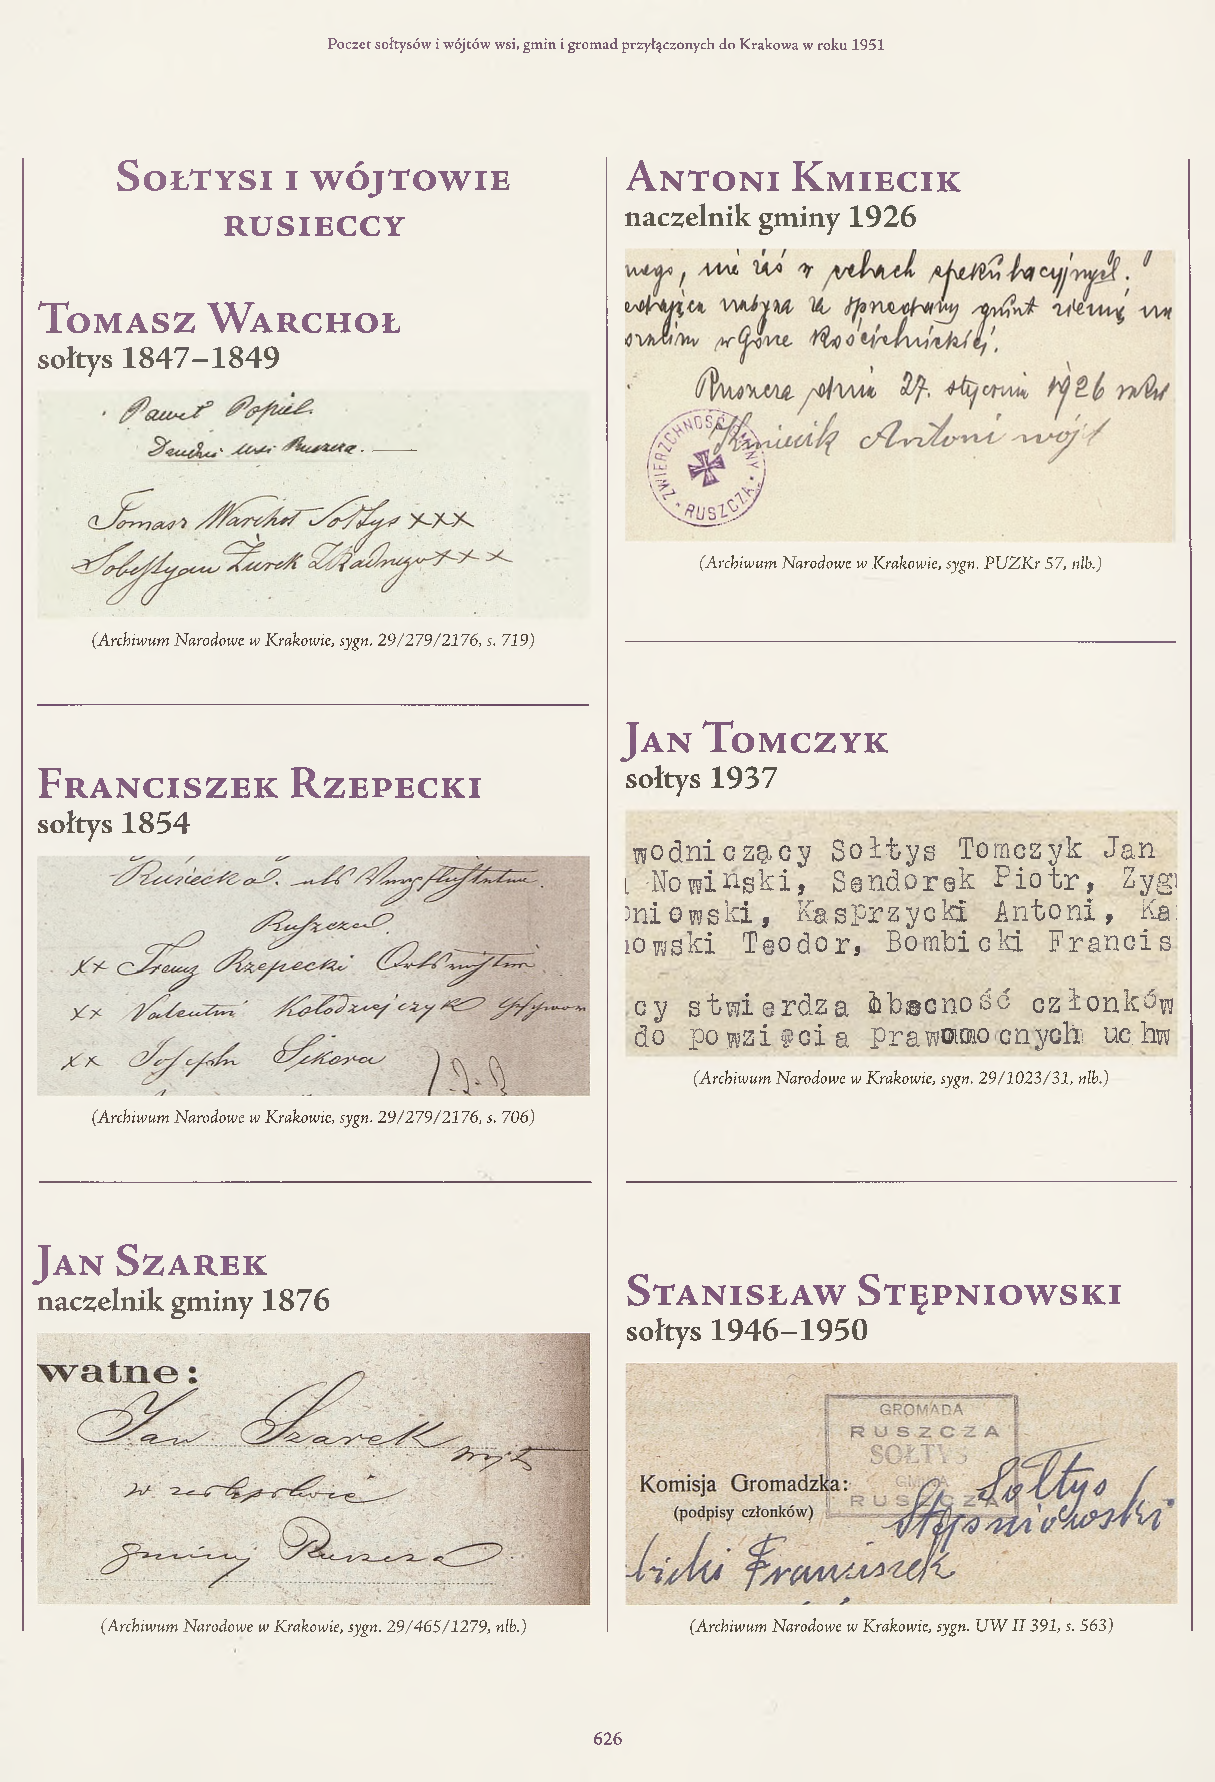 Poczet sołtysów i wójtów wsi, gmin i gromad przyłączonych do Krakowa w roku 1951
Sołtysi i wójtowie
rusieccy
Tomasz Warchoł
sołtys 1847–1849
Paweł Popiel.
wsi Ruszcza.
Tomasz Warchoł Sołtys xxx
Sobestyan Żurek xxx
(Archiwum Narodowe w Krakowie, sygn. 29/279/2176, s. 719)
Franciszek Rzepecki
sołtys 1854
Rusiecka. als
Ruszcza
xx Franz Rzepecki
xx Valentin Kołodziejczyk
xx Joseph Sikora
(Archiwum Narodowe w Krakowie, sygn. 29/279/2176, s. 706)
Jan Szarek
naczelnik gminy 1876
watne:
Jan Szarek wójt
w zastępstwie
gminy Ruszcza
(Archiwum Narodowe w Krakowie, sygn. 29/465/1279, nlb.)
Antoni Kmiecik
naczelnik gminy 1926
nego, nie zaś w celach spekulacyjnych.
za sprzedany grunt ziemię na
w Górze Kościelnickiej.
Ruszcza dnia 27. stycznia 1926 roku
Kmiecik Antoni wójt
ZWIERZCHNOŚĆ GMINY
RUSZCZA
(Archiwum Narodowe w Krakowie, sygn. PUZKr 57, nlb.)
Jan Tomczyk
sołtys 1937
wodniczący Sołtys Tomczyk Jan
Nowiński, Sendorek Piotr, Zyg
niowski, Kasprzycki Antoni, Ka
owski Teodor, Bombicki Francis
cy stwierdza obecność członków
do powzięcia prawomocnych uchw
(Archiwum Narodowe w Krakowie, sygn. 29/1023/31, nlb.)
Stanisław Stępniowski
sołtys 1946–1950
GROMADA
RUSZCZA
SOŁTYS
GMINA
RUSZCZA
Komisja Gromadzka:
(podpisy członków)
Sołtys
Stępniowski
bicki Franciszek
(Archiwum Narodowe w Krakowie, sygn. UW II 391, s. 563)
626